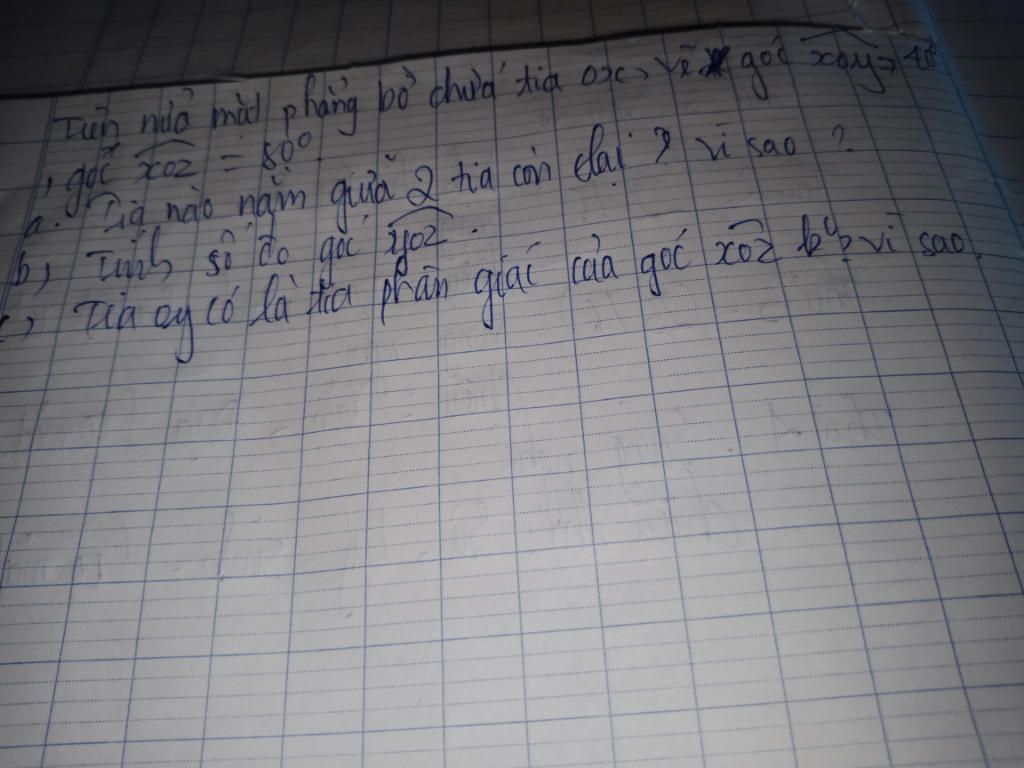 Trên nửa mặt phẳng bờ chứa tia Ox, vẽ góc xoy = 40
, góc xoz = 80°.
a. Tia nào nằm giữa 2 tia còn lại ? vì sao ?
b, Tính số đo góc yoz.
c, Tia oy có là tia phân giác của góc xoz ? vì sao.